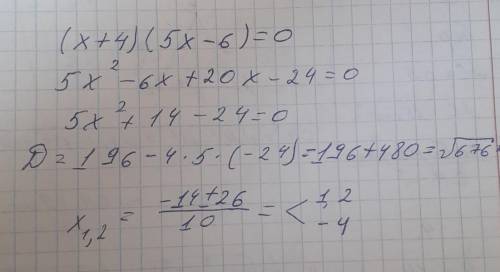 (x+4)(5x-6)=0
5x²-6x+20x-24=0
5x²+14-24=0
D=196-4·5·(-24)=196+480=√676
x₁,₂ = (-14±26)/10 = < 1,2 -4